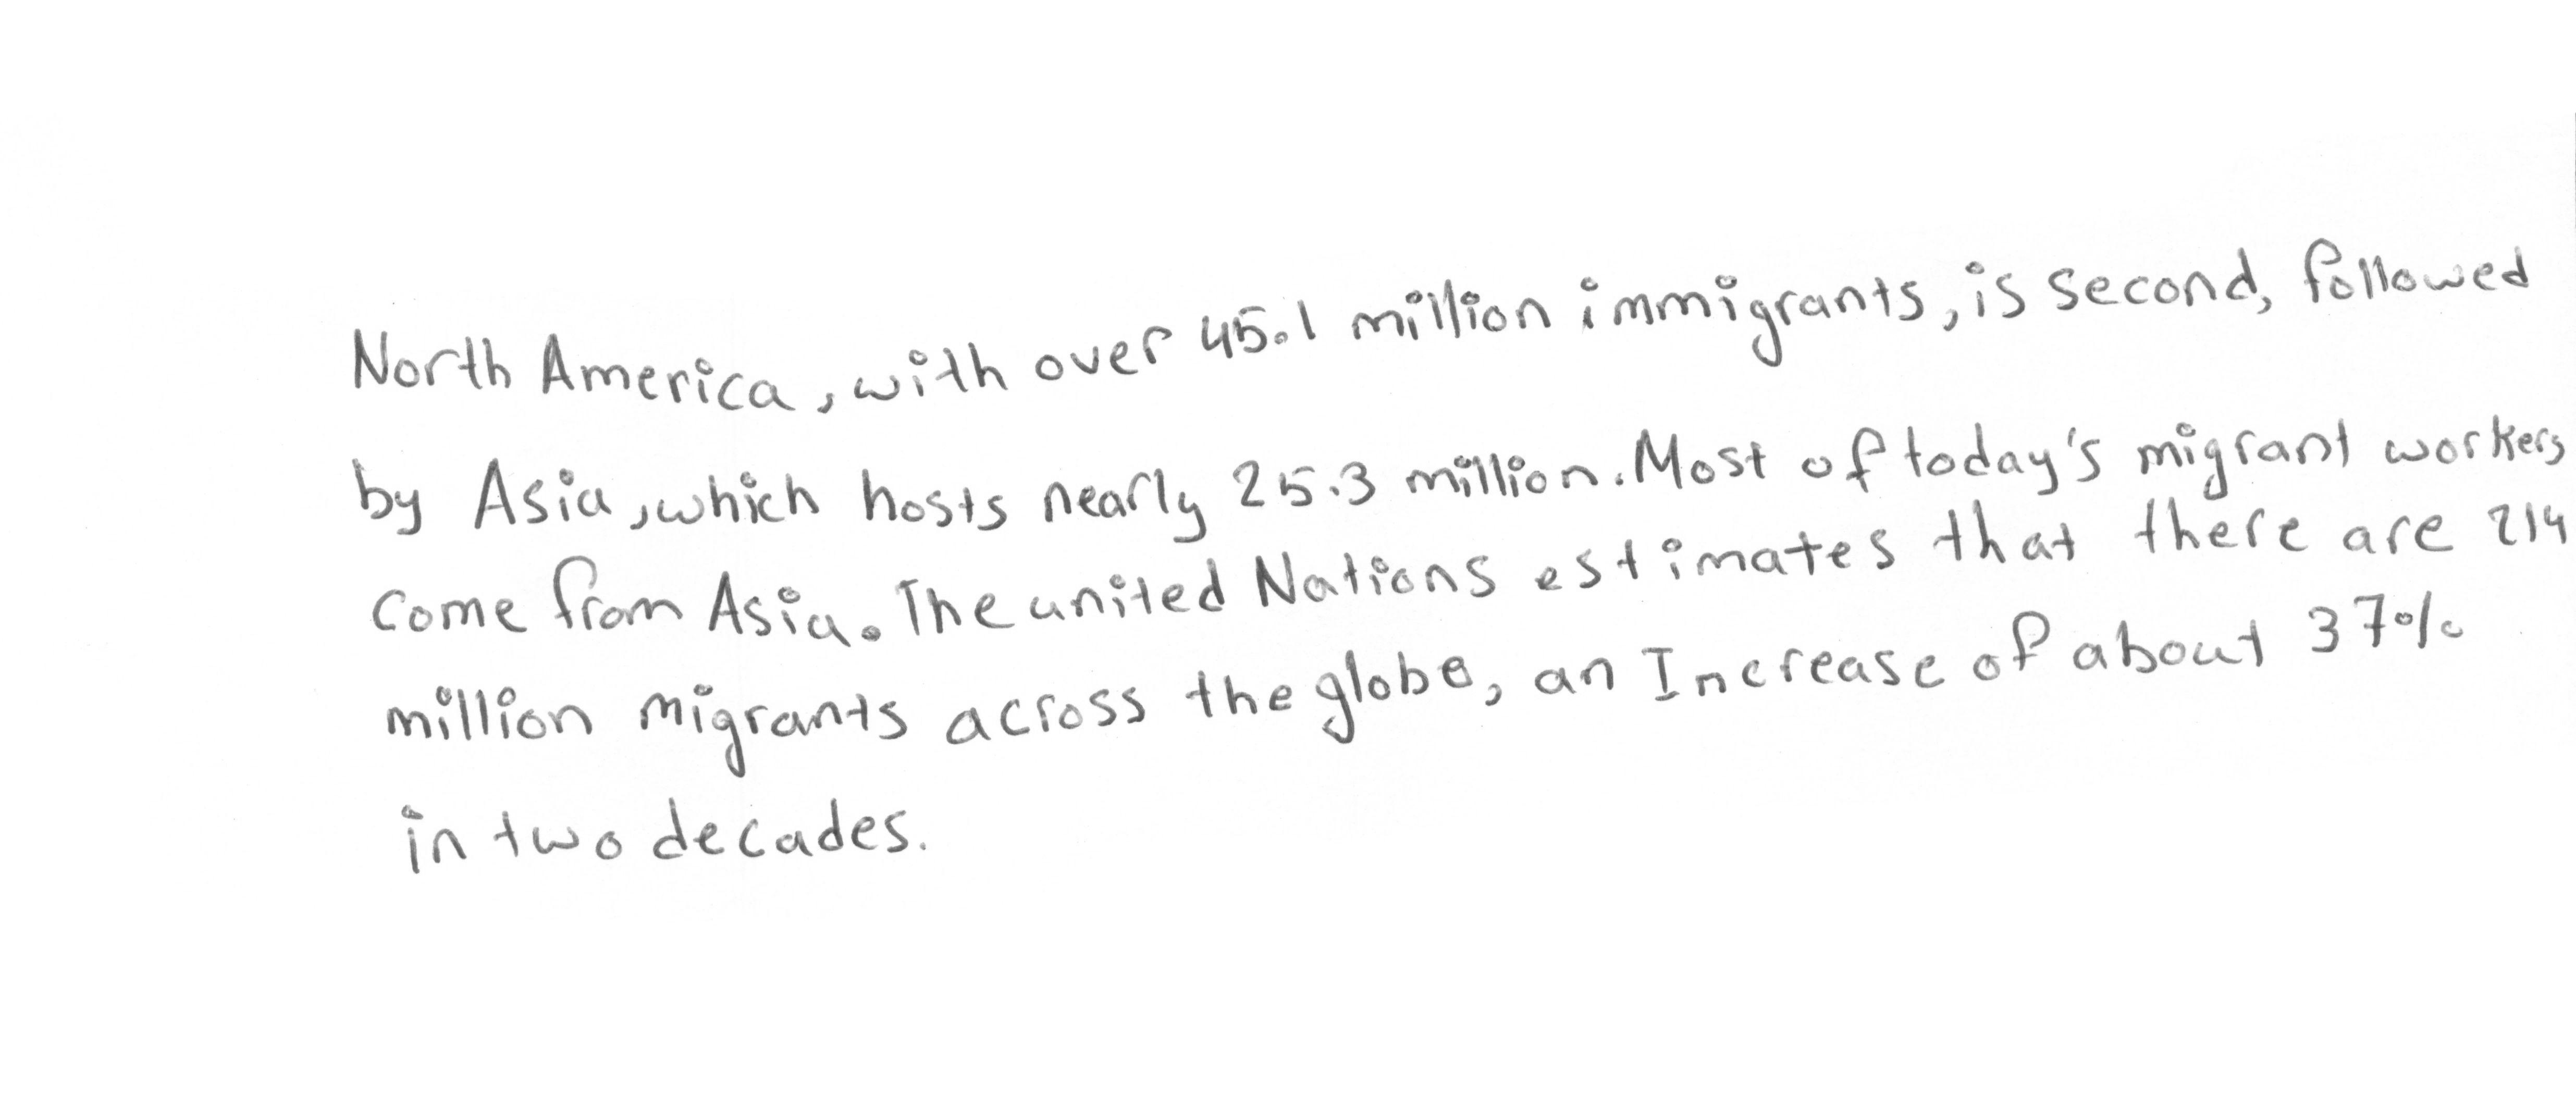 North America, with over 45.1 million immigrants, is second, followed
by Asia, which hosts nearly 25.3 million. Most of today's migrant workers
come from Asia. The united Nations estimates that there are 214
million migrants across the globe, an Increase of about 37%
in two decades.